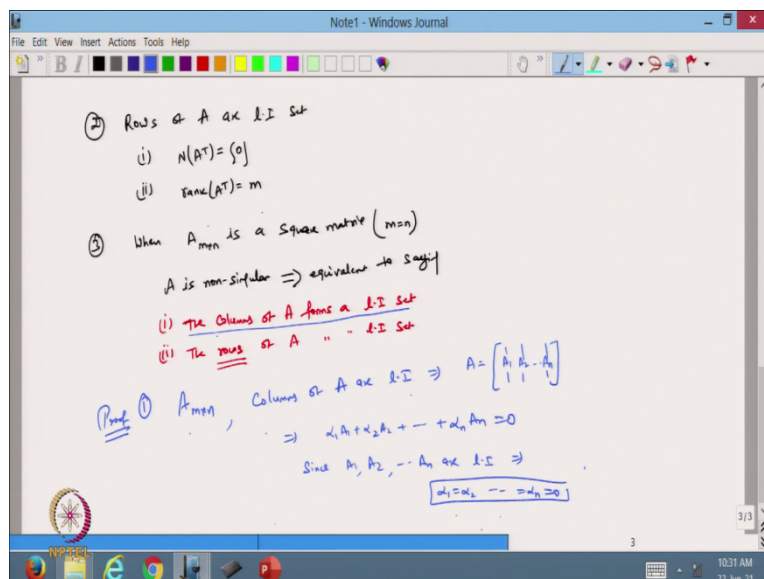 Note1 - Windows Journal
File Edit View Insert Actions Tools Help
B I
② Rows of A are l.I Set
(i) N(Aᵀ) = {0}
(ii) rank(Aᵀ) = m
③ When Aₘₓₙ is a square matrix (m=n)
A is non-singular ⇒ equivalent to saying
(i) The Columns of A forms a l.I Set
(ii) The rows of A " " l.I Set
Proof ① Aₘₓₙ, Columns of A are l.I ⇒ A = [A₁ A₂ ... Aₙ]
⇒ α₁A₁ + α₂A₂ + -- + αₙAₙ = 0
Since A₁, A₂, -- Aₙ are l.I ⇒
α₁ = α₂ -- = αₙ = 0
3/3
3
NPTEL
10:31 AM